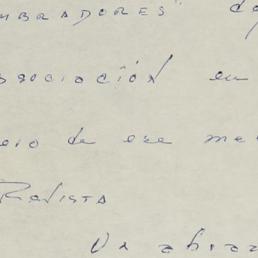 MBRADORES" de
asociación en
eio de ese me
Revista
Un abraz